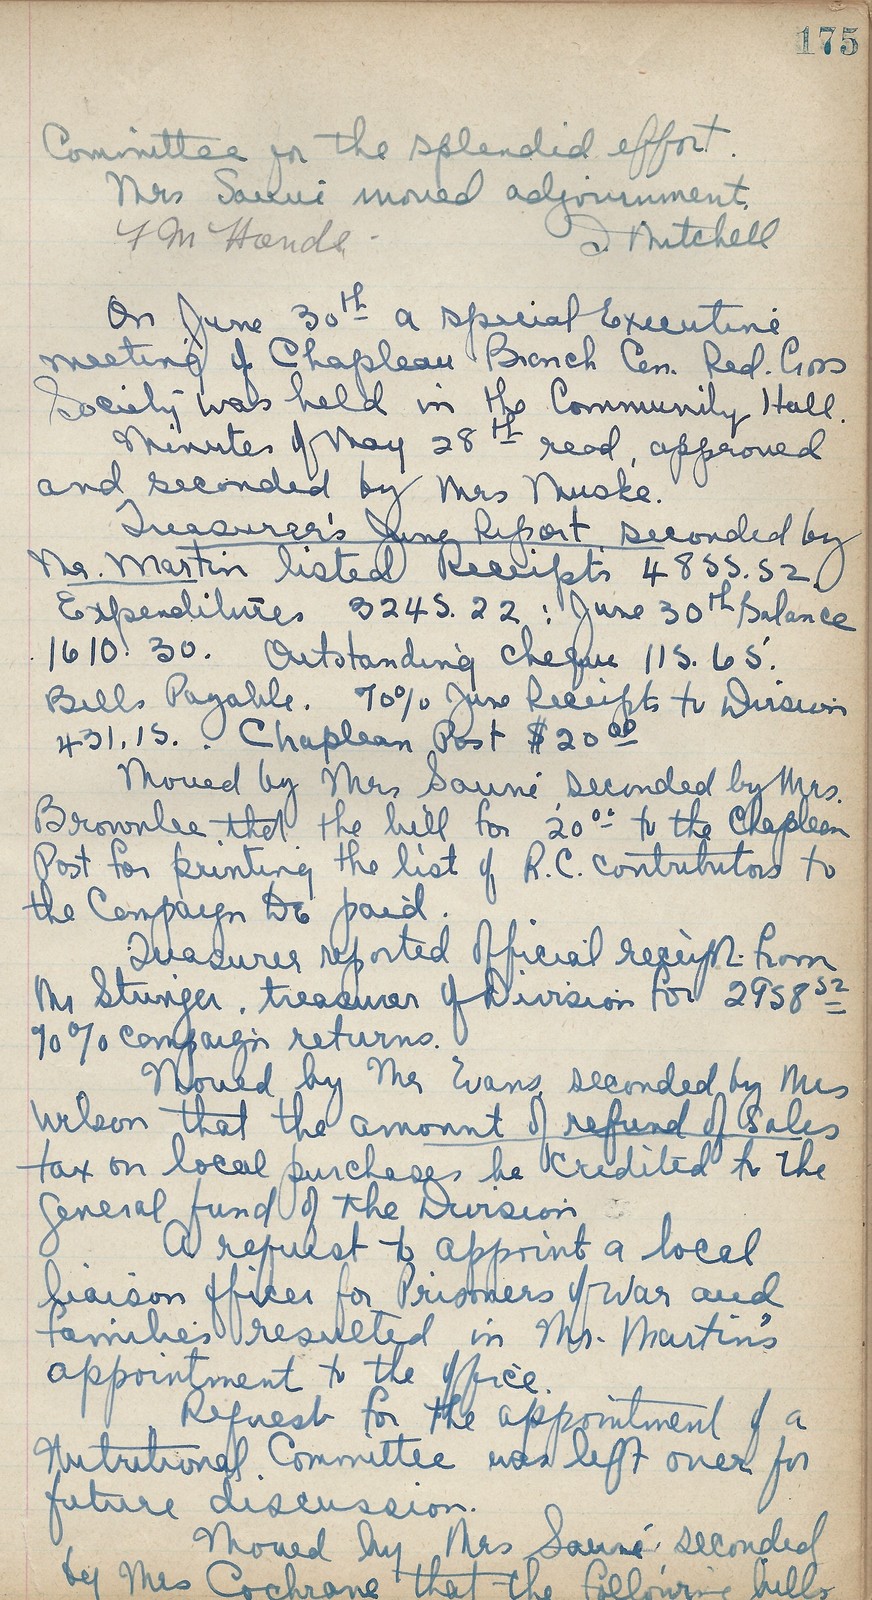 175
Committee for the splendid effort.
Mrs Sauvé moved adjournment.
F M Hands - D Mitchell
On June 30th a special Executive
meeting of Chapleau Branch Can. Red. Cross
Society was held in the Community Hall.
Minutes of May 28th read, approved
and seconded by Mrs Muske.
Treasurer's June Report seconded by
Mr. Martin listed Receipts 4855.52
Expenditures 3245.22 : June 30th Balance
1610.30. Outstanding cheque 115.65.
Bills Payable. 90% June Receipts to Division
431.15. . Chapleau Post $20.00
Moved by Mrs Sauvé seconded by Mrs.
Brownlee that the bill for 20.00 to the Chapleau
Post for printing the list of R.C. contributors to
the Campaign be paid.
Treasurer reported official receipt from
Mr Stringer, treasurer of Division for 2958.52
90% campaign returns.
Moved by Mr Evans, seconded by Mrs
Wilson that the amount of refund of Sales
tax on local purchases be credited to the
general fund of the Division
A request to appoint a local
liaison officer for Prisoners of War and
families resulted in Mr. Martin's
appointment to the office.
Request for the appointment of a
Nutritional Committee was left over for
future discussion.
Moved by Mrs Sauvé seconded
by Mrs Cochrane that the following bills